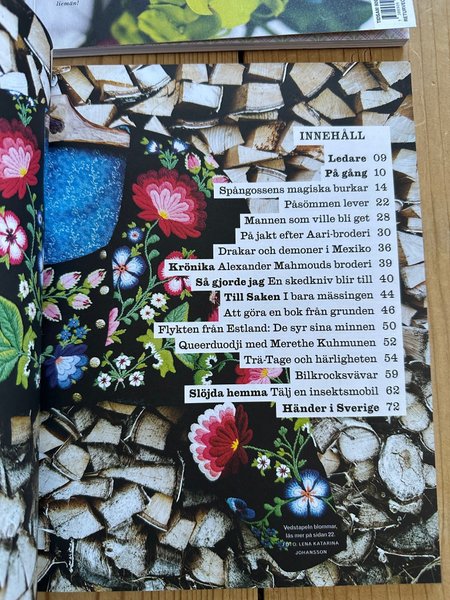 liemän!
INNEHÅLL
Ledare 09
På gång 10
Spångossens magiska burkar 14
Påsömmen lever 22
Mannen som ville bli get 28
På jakt efter Aari-broderi 30
Drakar och demoner i Mexiko 36
Krönika Alexander Mahmouds broderi 39
Så gjorde jag En skedkniv blir till 40
Till Saken I bara mässingen 44
Att göra en bok från grunden 46
Flykten från Estland: De syr sina minnen 50
Queerduodji med Merethe Kuhmunen 52
Trä-Tage och härligheten 54
Bilkrocksvävar 59
Slöjda hemma Tälj en insektsmobil 62
Händer i Sverige 72
Vedstapeln blommar,
läs mer på sidan 22.
FOTO: LENA KATARINA
JOHANSSON